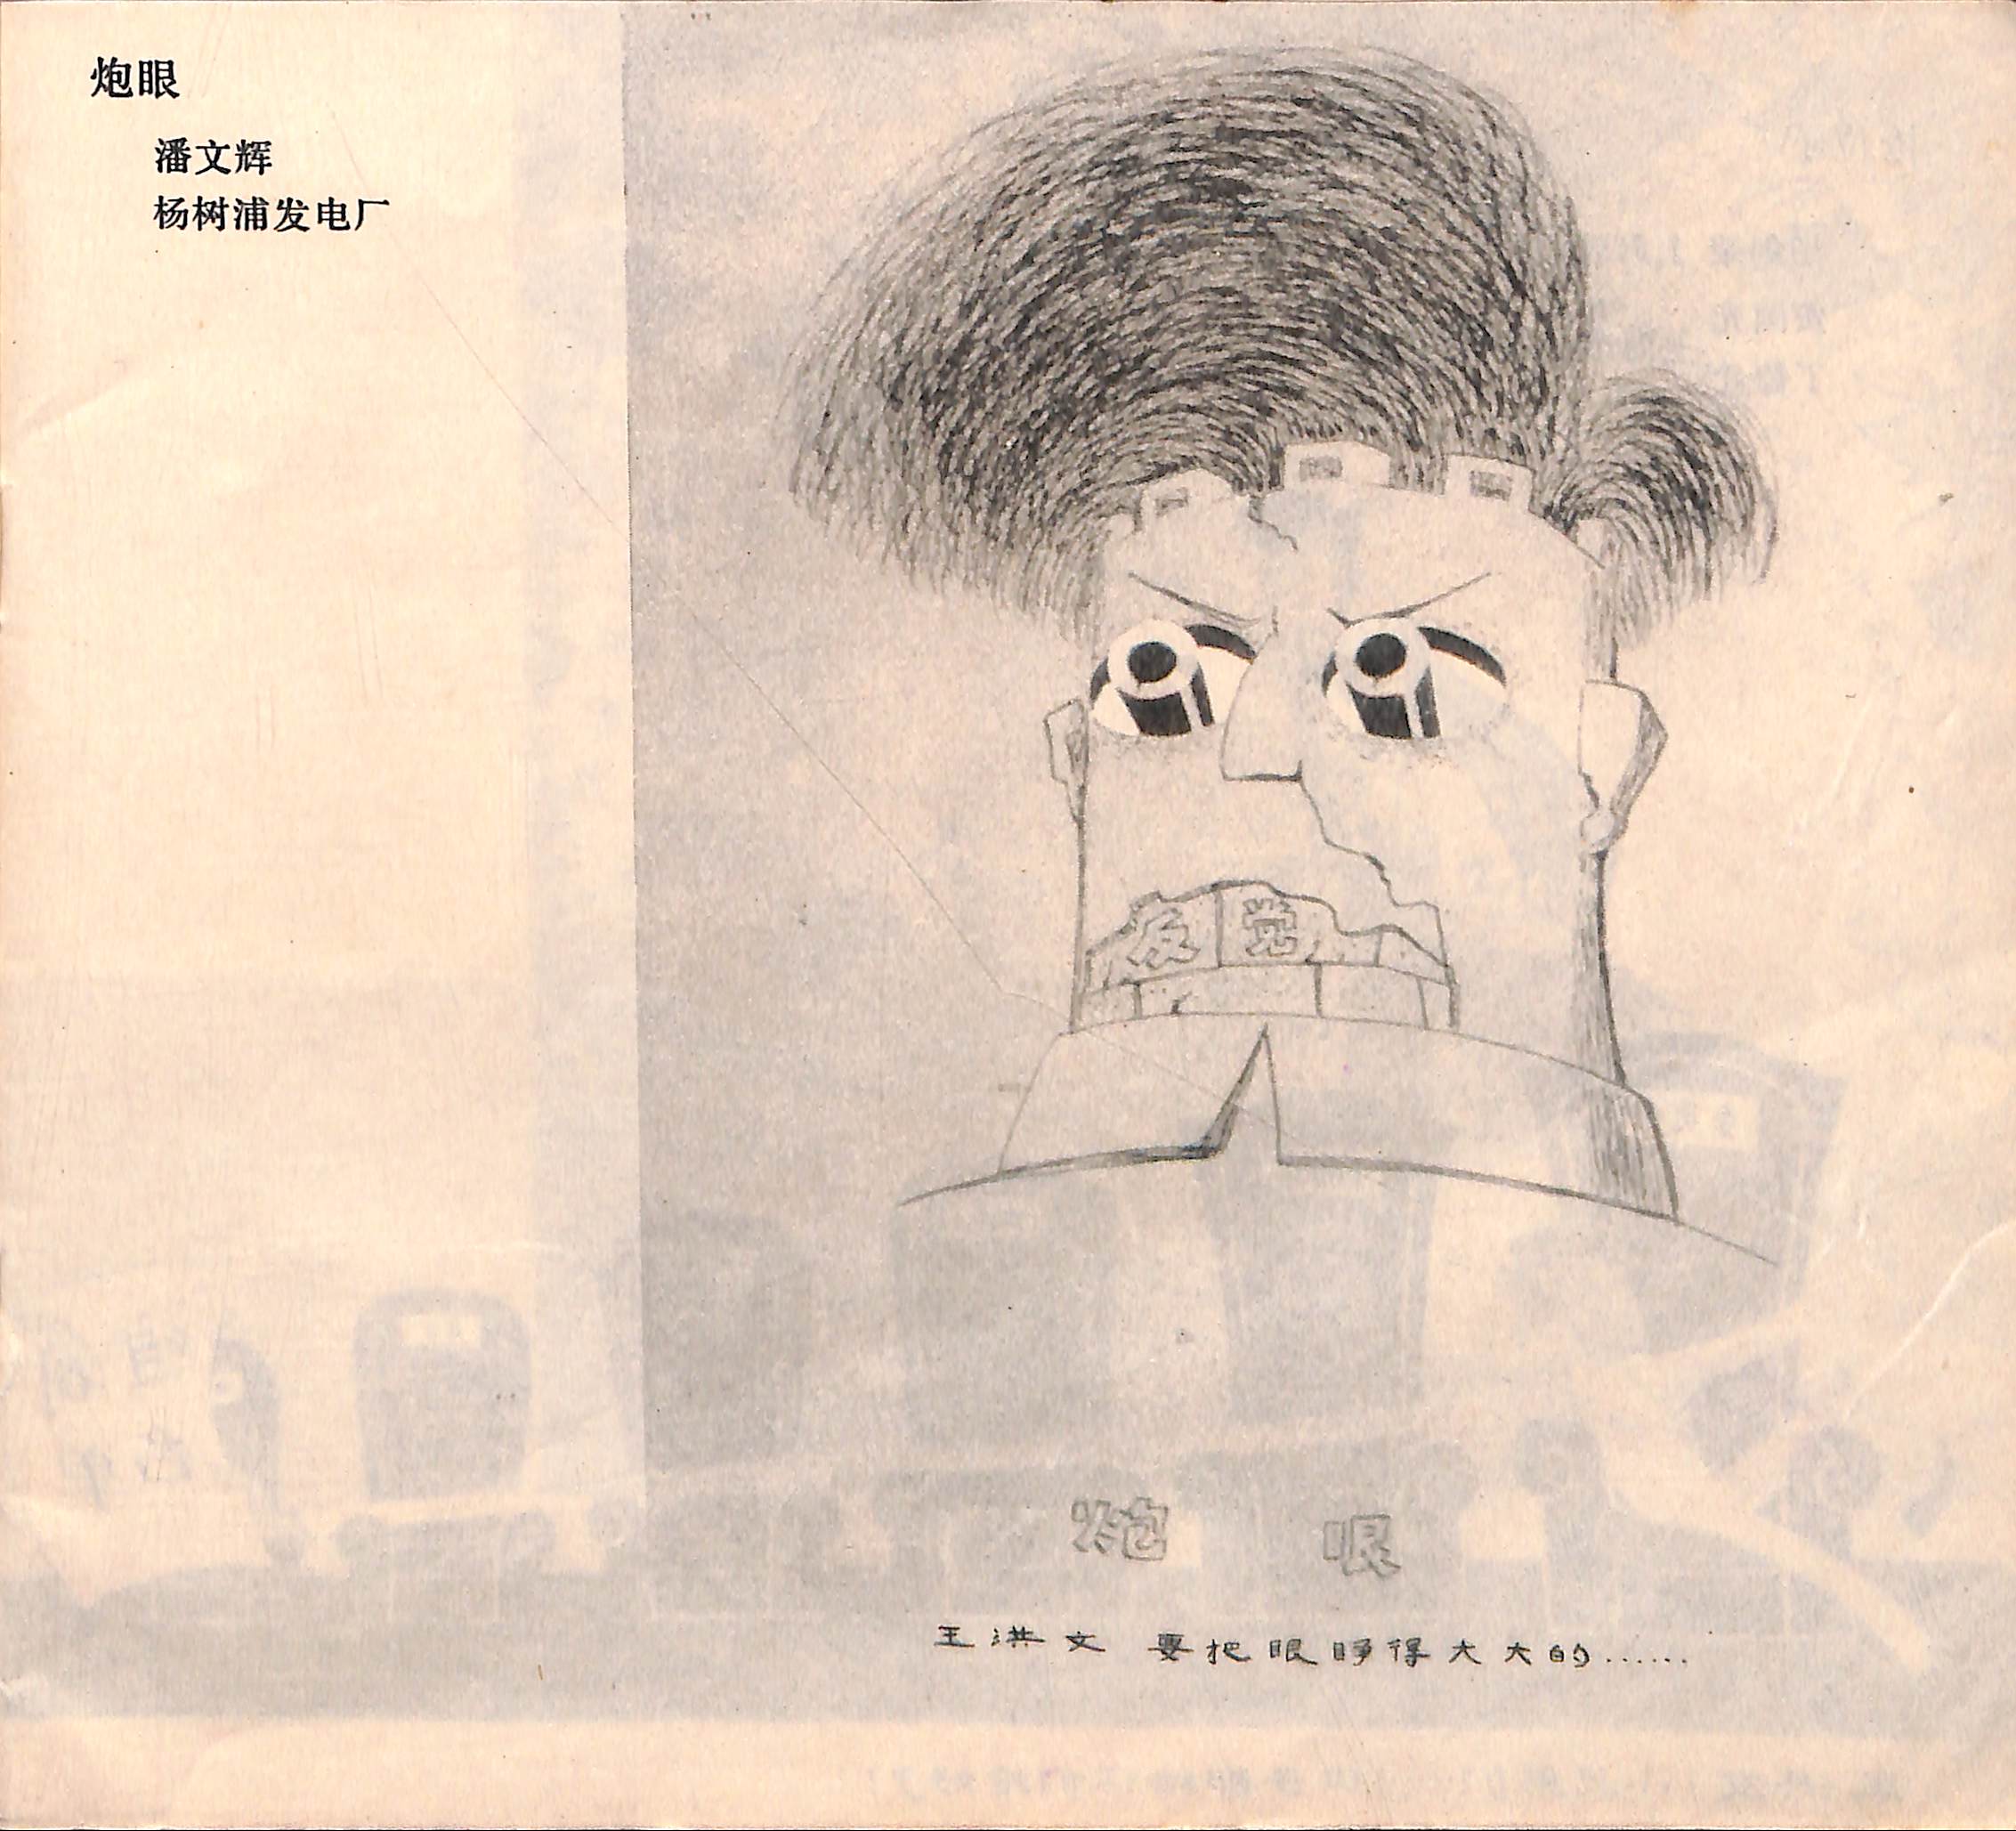 炮眼
潘文辉
杨树浦发电厂
反党
炮眼
王洪文 要把眼睁得大大的……